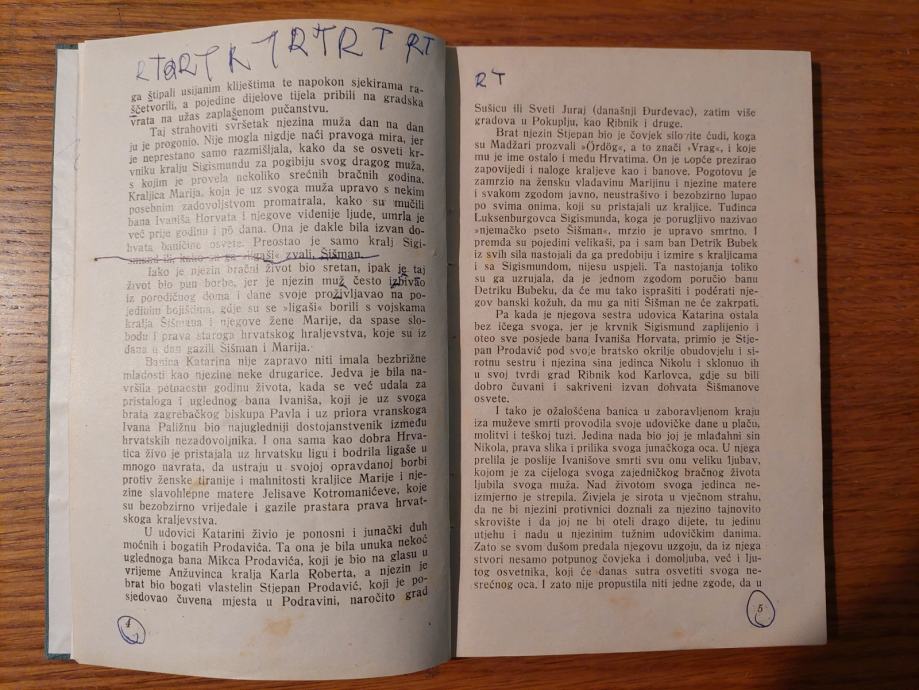 RTQRT R T RT R T RT
ga štipali usijanim kliještima te napokon sjekirama ra-
ščetvorili, a pojedine dijelove tijela pribili na gradska
vrata na užas zaplašenom pučanstvu.
Taj strahoviti svršetak njezina muža dan na dan
ju je progonio. Nije mogla nigdje naći pravoga mira, jer
je neprestano samo razmišljala, kako da se osveti kr-
vniku kralju Sigismundu za pogibiju svog dragog muža,
s kojim je provela nekoliko srećnih bračnih godina.
Kraljica Marija, koja je uz svoga muža upravo s nekim
posebnim zadovoljstvom promatrala, kako su mučili
bana Ivaniša Horvata i njegove viđenije ljude, umrla je
već prije godinu i pô dana. Ona je dakle bila izvan do-
hvata baničine osvete. Preostao je samo kralj Sigi-
smund ili, kako su ga »ligaši« zvali, Šišman.
Iako je njezin bračni život bio sretan, ipak je taj
život bio pun borbe, jer je njezin muž često izbivao
iz porodičnog doma i dane svoje proživljavao na po-
jedinim bojištima, gdje su se »ligaši« borili s vojskama
kralja Šišmana i njegove žene Marije, da spase slo-
bodu i prava staroga hrvatskog kraljevstva, koje su iz
dana u dan gazili Šišman i Marija.
Banica Katarina nije zapravo niti imala bezbrižne
mladosti kao njezine neke drugarice. Jedva je bila na-
vršila petnaestu godinu života, kada se već udala za
pristaloga i uglednog bana Ivaniša, koji je uz svoga
brata zagrebačkog biskupa Pavla i uz priora vranskoga
Ivana Paližnu bio najugledniji dostojanstvenik između
hrvatskih nezadovoljnika. I ona sama kao dobra Hrva-
tica živo je pristajala uz hrvatsku ligu i bodrila ligaše u
mnogo navrata, da ustraju u svojoj opravdanoj borbi
protiv ženske tiranije i mahnitosti kraljice Marije i nje-
zine slavohlepne matere Jelisave Kotromanićeve, koje
su bezobzirno vrijeđale i gazile prastara prava hrvat-
skoga kraljevstva.
U udovici Katarini živio je ponosni i junački duh
moćnih i bogatih Prodavića. Ta ona je bila unuka nekoć
uglednoga bana Mikca Prodavića, koji je bio na glasu u
vrijeme Anžuvinca kralja Karla Roberta, a njezin je
brat bio bogati vlastelin Stjepan Prodavić, koji je po-
sjedovao čuvena mjesta u Podravini, naročito grad
4
RT
Sušicu ili Sveti Juraj (današnji Đurđevac), zatim više
gradova u Pokuplju, kao Ribnik i druge.
Brat njezin Stjepan bio je čovjek silovite ćudi, koga
su Madžari prozvali »Ördög«, a to znači »Vrag«, i koje
mu je ime ostalo i među Hrvatima. On je uopće prezirao
zapovijedi i naloge kraljeve kao i banove. Pogotovu je
zamrzio na žensku vladavinu Marijinu i njezine matere
i svakom zgodom javno, neustrašivo i bezobzirno lupao
po svima onima, koji su pristajali uz kraljice. Tuđinca
Luksenburgovca Sigismunda, koga je porugljivo nazivao
»njemačko pseto Šišman«, mrzio je upravo smrtno. I
premda su pojedini velikaši, pa i sam ban Detrik Bubek
iz svih sila nastojali da ga predobiju i izmire s kraljicama
i sa Sigismundom, nijesu uspjeli. Ta nastojanja toliko
su ga uzrujala, da je jednom zgodom poručio banu
Detriku Bubeku, da će mu tako isprašiti i poderati nje-
gov banski kožuh, da mu ga niti Šišman ne će zakrpati.
Pa kada je njegova sestra udovica Katarina ostala
bez ičega svoga, jer je krvnik Sigismund zaplijenio i
oteo sve posjede bana Ivaniša Horvata, primio je Stje-
pan Prodavić pod svoje bratsko okrilje obudovjelu i si-
rotnu sestru i njezina sina jedinca Nikolu i sklonuo ih
u svoj tvrdi grad Ribnik kod Karlovca, gdje su bili
dobro čuvani i sakriveni izvan dohvata Šišmanove
osvete.
I tako je ožalošćena banica u zaboravljenom kraju
iza muževe smrti provodila svoje udovičke dane u plaču,
molitvi i teškoj tuzi. Jedina nada bio joj je mlađahni sin
Nikola, prava slika i prilika svoga junačkoga oca. U njega
prelila je poslije Ivanišove smrti svu onu veliku ljubav,
kojom je za cijeloga svoga zajedničkog bračnog života
ljubila svoga muža. Nad životom svoga jedinca ne-
izmjerno je strepila. Živjela je sirota u vječnom strahu,
da ne bi njezini protivnici doznali za njezino tajnovito
skrovište i da joj ne bi oteli drago dijete, tu jedinu
utjehu i nadu u njezinim tužnim udovičkim danima.
Zato se svom dušom predala njegovu uzgoju, da iz njega
stvori nesamo potpunog čovjeka i domoljuba, već i lju-
tog osvetnika, koji će danas sutra osvetiti svoga ne-
srećnog oca. I zato nije propustila niti jedne zgode, da u
5